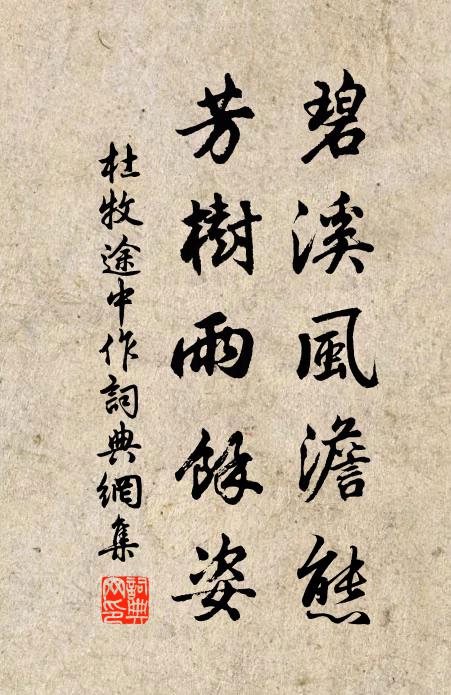 碧溪風澹態
芳樹雨餘姿
杜牧途中作詞典網集
詞典网印